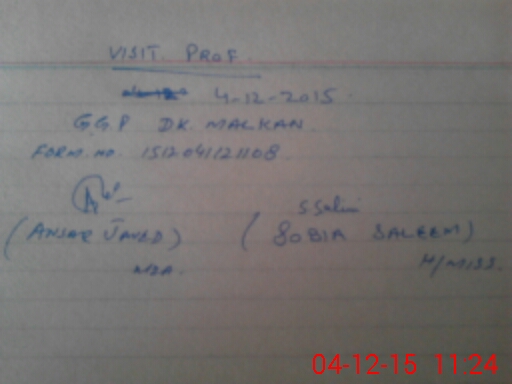 VISIT PROF
4-12-2015.
G.G.P DK. MALKAN.
FORM. NO. 1512041121108.
S Salim
(ANSAR JAVED) (SOBIA SALEEM)
MEA. H/MISS.
04-12-15 11:24